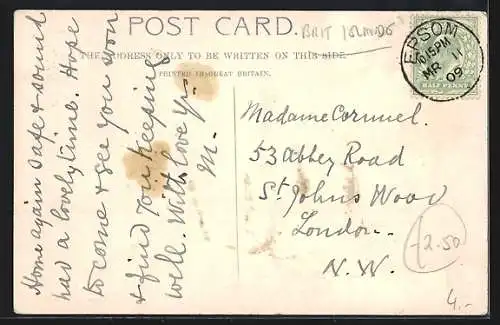 POST CARD.
BRIT ISLANDS
THE ADDRESS ONLY TO BE WRITTEN ON THIS SIDE.
PRINTED IN GREAT BRITAIN.
Home again safe & sound
had a lovely time. Hope
to come & see you soon
& find you keeping
well. With love yrs.
M.
EPSOM
10.15PM
MR 11
09
HALF PENNY
Madame
53 Abbey Road
St Johns Wood
London.
N.W.
2.50
4.-